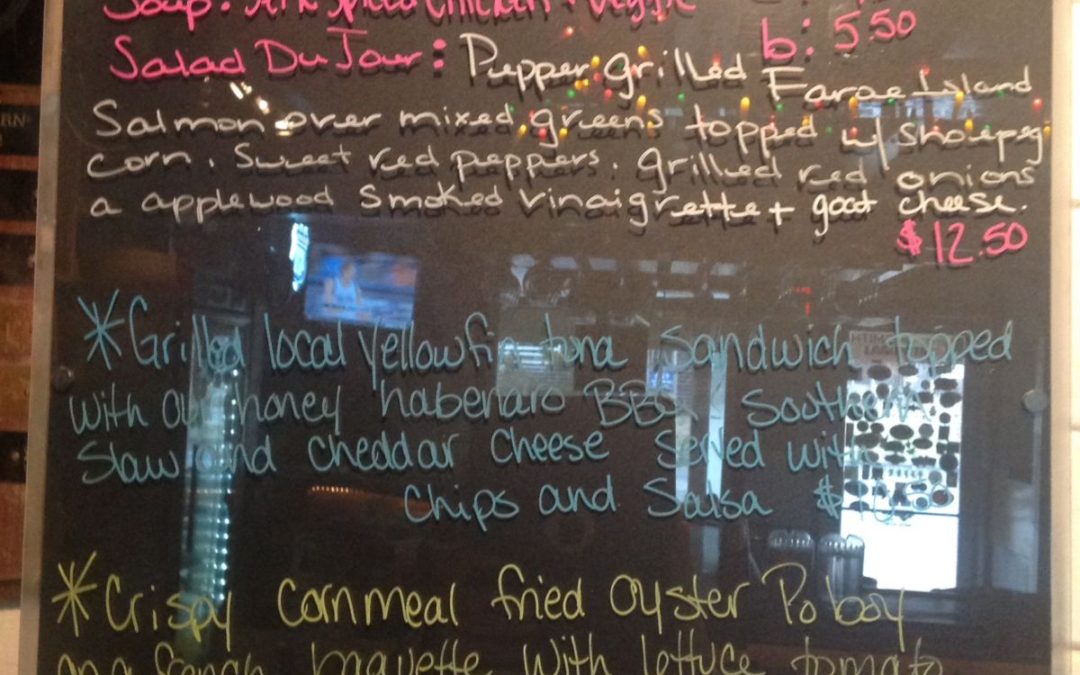 Soup: Jerk Spiced Chicken + Veggie
b: 5.50
Salad Du Jour: Pepper grilled Faroe Island
Salmon over mixed greens topped w/ Shoepeg
corn. Sweet red peppers. grilled red onions
a applewood smoked vinaigrette + goat cheese.
$12.50
*Grilled local yellowfin tuna sandwich topped
with our honey habenaro BBQ Southern
Slaw and cheddar cheese served with
chips and Salsa $
*Crispy cornmeal fried Oyster Po boy
on a french baguette with lettuce tomato